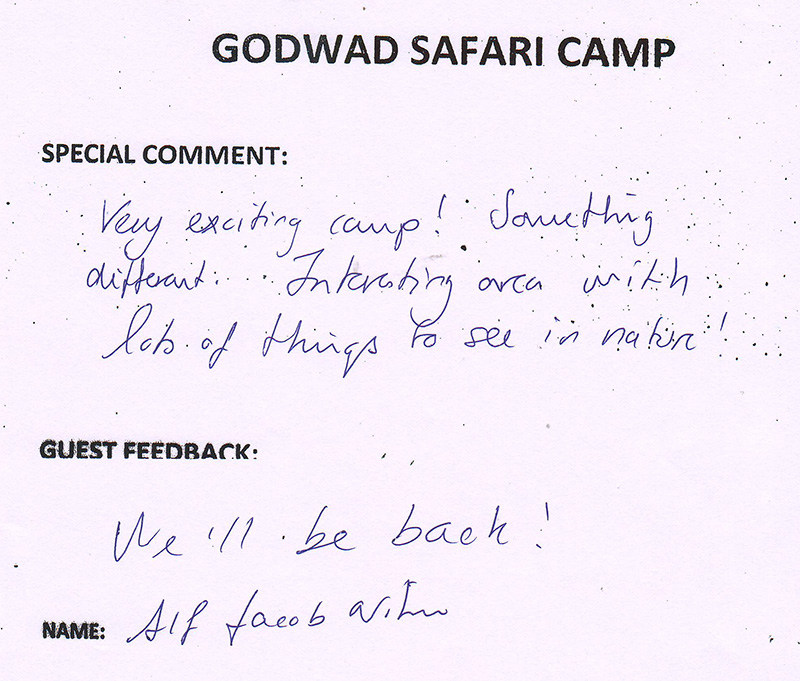 GODWAD SAFARI CAMP
SPECIAL COMMENT:
Very exciting camp! Something
different. Interesting area with
lots of things to see in nature!
GUEST FEEDBACK:
We'll be back!
NAME: Alf Jacob